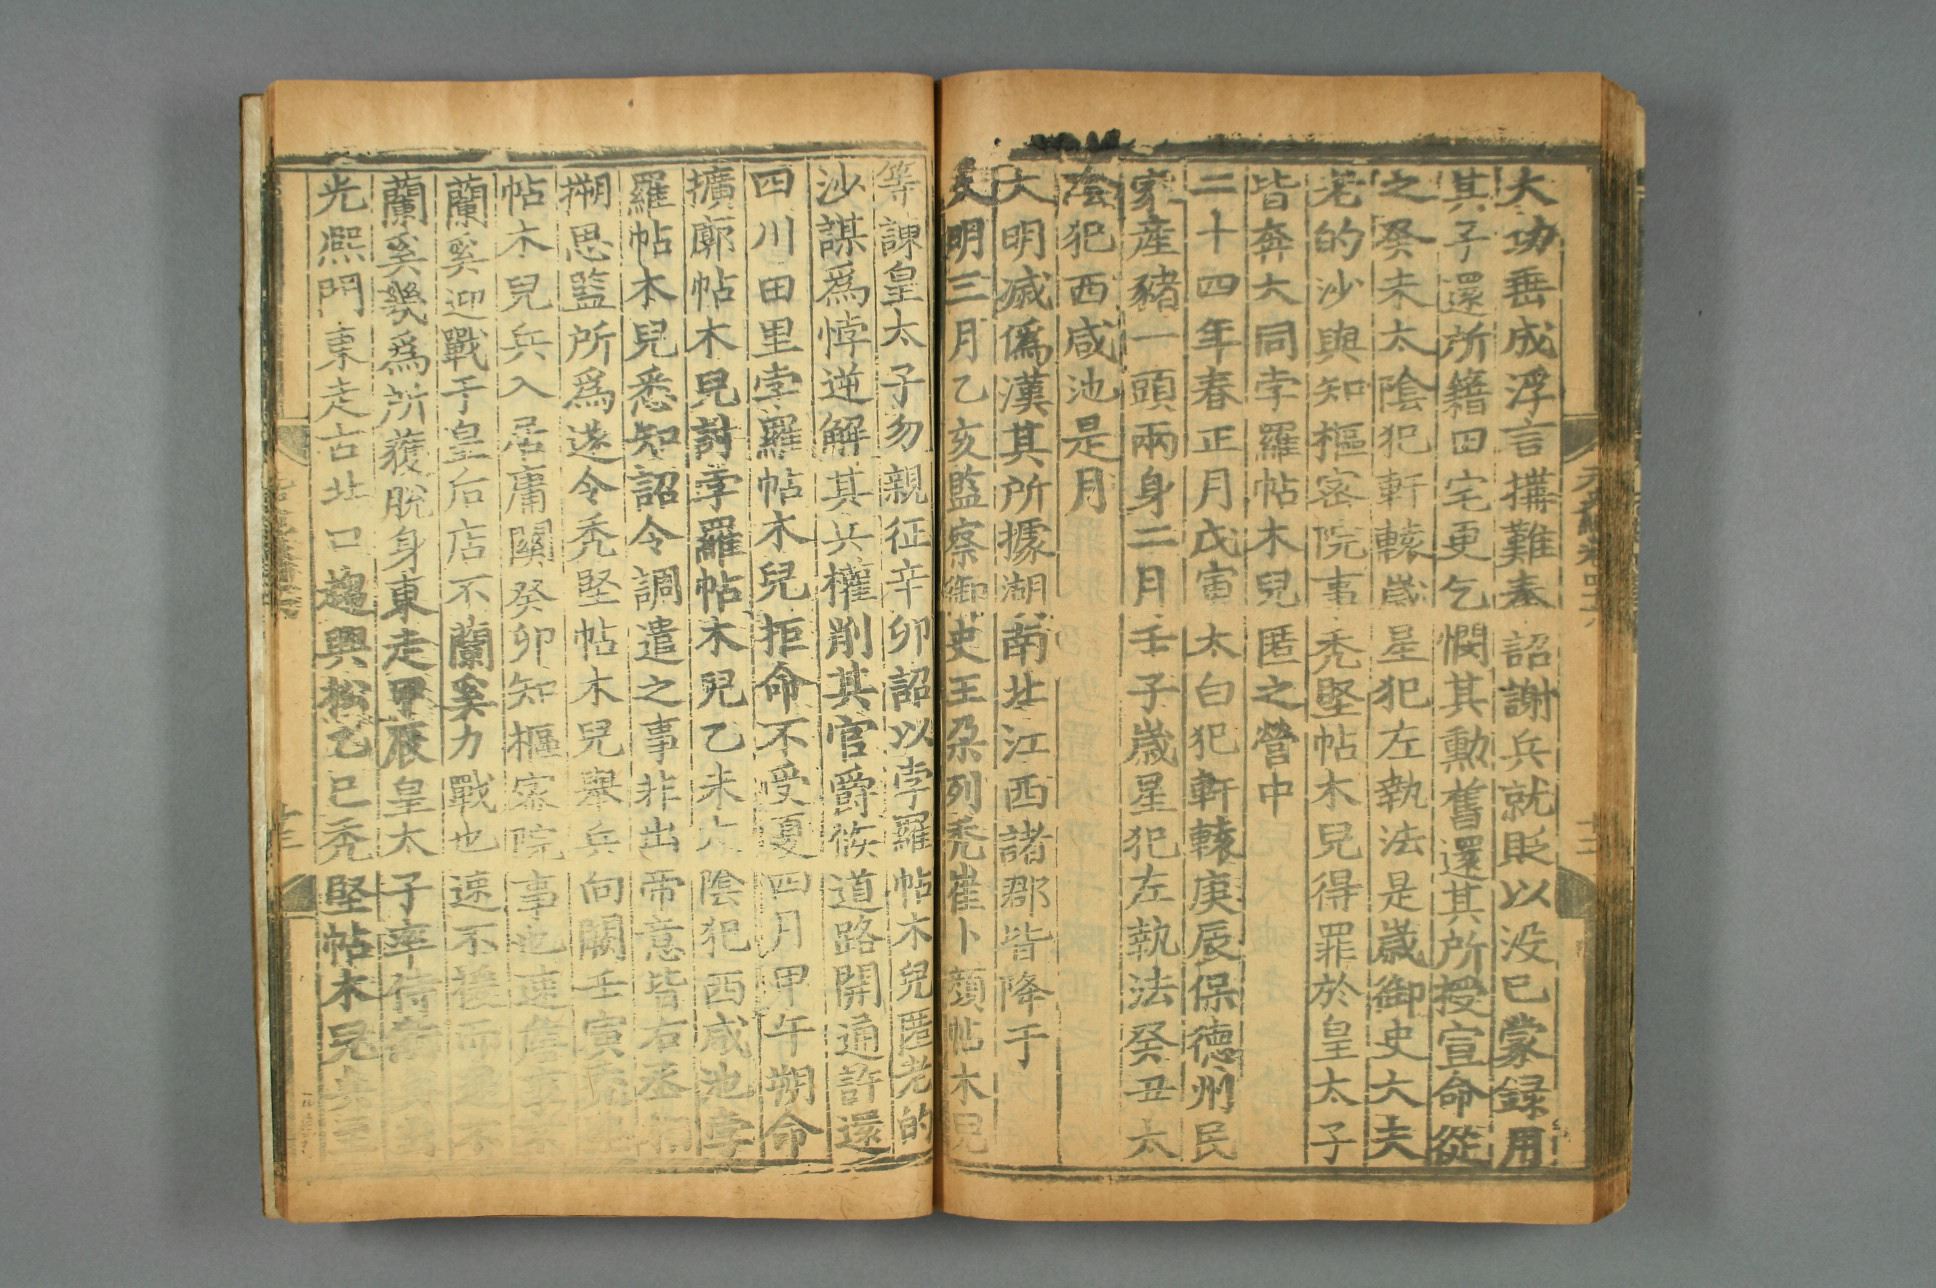 大功垂成浮言搆難奏詔謝兵就貶以没已蒙録用
其子還所籍田宅更乞憫其勳舊還其所授宣命從
之癸未太陰犯軒轅歲星犯左執法是歲御史大夫
老的沙與知樞密院事禿堅帖木兒得罪於皇太子
皆奔大同孛羅帖木兒匿之營中
二十四年春正月戊寅太白犯軒轅庚辰保德州民
家産豬一頭兩身二月壬子歲星犯左執法癸丑太
陰犯西咸池是月
大明滅僞漢其所據湖南北江西諸郡皆降于
大明三月乙亥監察御史王朶列禿崔卜顏帖木兒
等諫皇太子勿親征辛卯詔以孛羅帖木兒匿老的
沙謀爲悖逆解其兵權削其官爵候道路開通許還
四川田里孛羅帖木兒拒命不受夏四月甲午朔命
擴廓帖木兒討孛羅帖木兒乙未太陰犯西咸池孛
羅帖木兒悉知詔令調遣之事非出帝意皆右丞相
搠思監所爲遂令禿堅帖木兒舉兵向闕壬寅禿堅
帖木兒兵入居庸關癸卯知樞密院事也速詹事不
蘭奚迎戰于皇后店不蘭奚力戰也速不援而退不
蘭奚幾爲所獲脫身東走甲辰皇太子率侍衛兵出
光熙門東走古北口趨興松乙巳禿堅帖木兒兵至